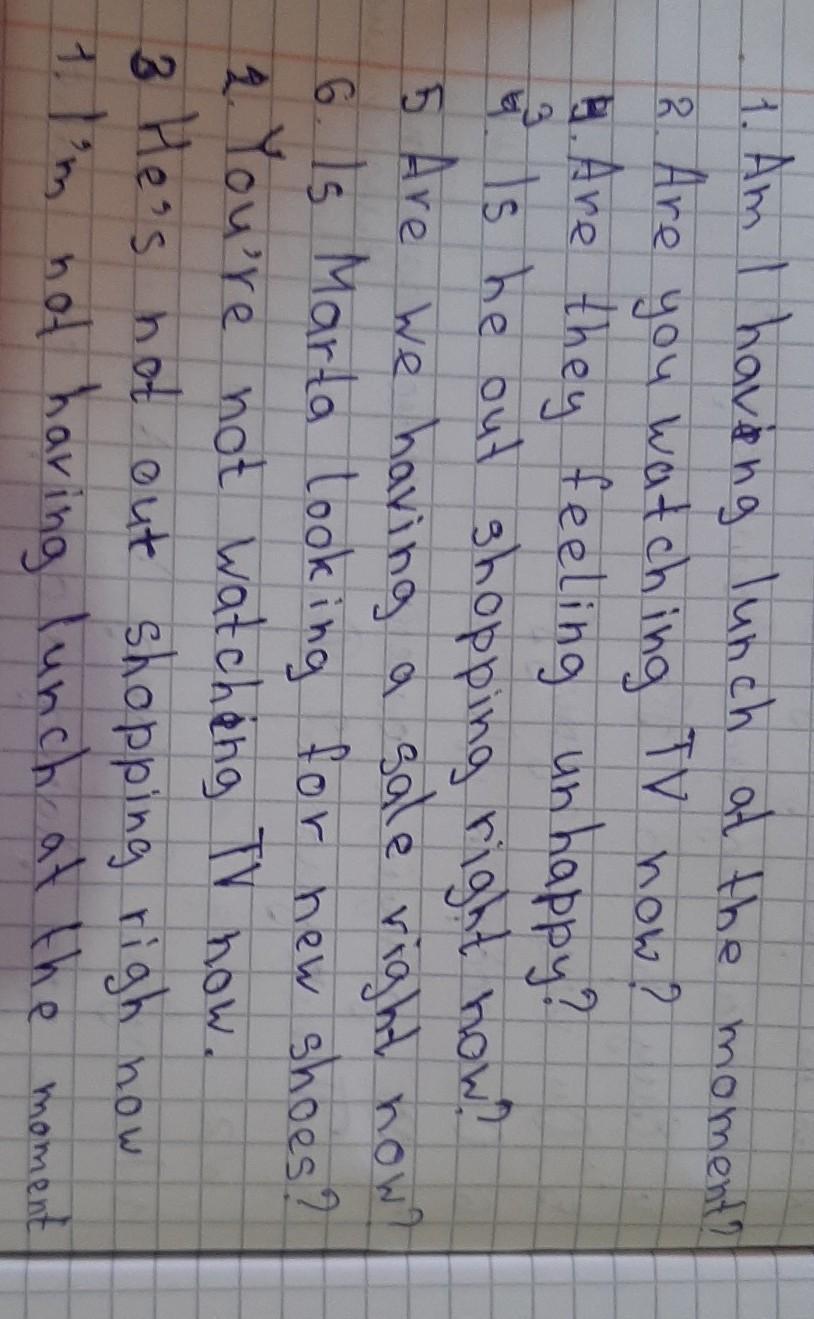 1. Am I having lunch at the moment?
2. Are you watching TV now?
4. Are they feeling unhappy?
3. Is he out shopping right now?
5 Are we having a sale right now?
6. Is Marta looking for new shoes?
2. You're not watching TV now.
3 He's not out shopping righ now
1. I'm not having lunch at the moment